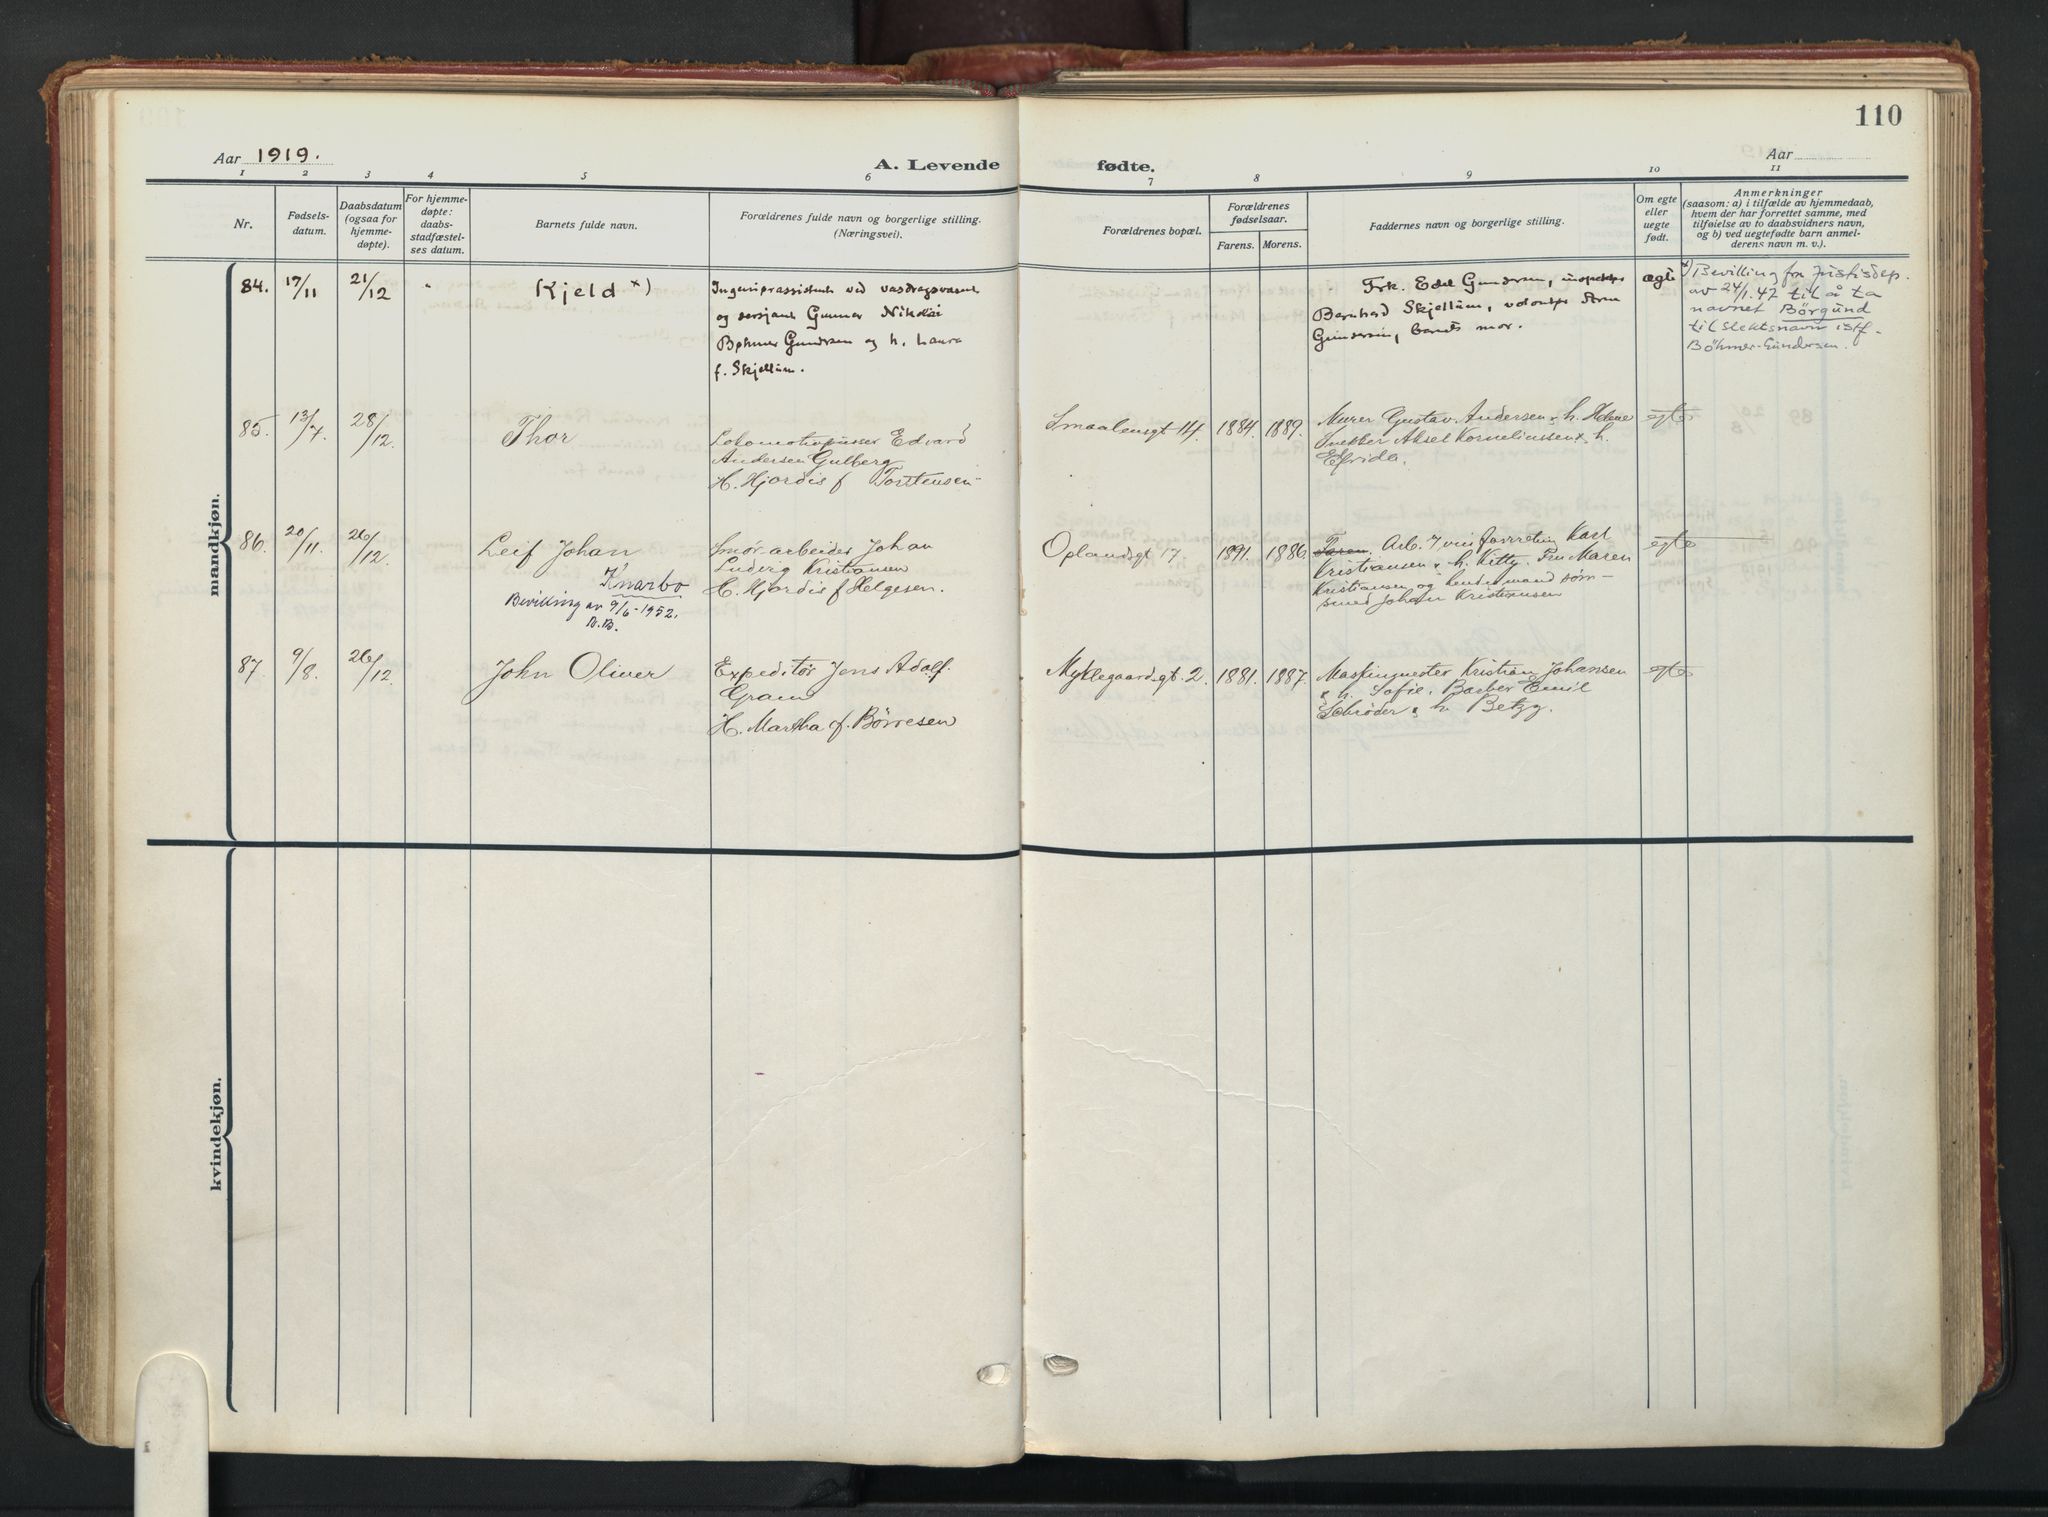 110
Aar 1919.
A. Levende fødte.
Aar
1 2 3 4 5 6 7 8 9 10 11
Nr.
Fødsels-
datum.
Daabsdatum
(ogsaa for
hjemme-
døpte).
For hjemme-
døpte:
daabs-
stadfæstel-
ses datum.
Barnets fulde navn.
Forældrenes fulde navn og borgerlige stilling.
(Næringsvei).
Forældrenes bopæl.
Forældrenes
fødselsaar.
Farens. Morens.
Faddernes navn og borgerlige stilling.
Om egte
eller
uegte
født.
Anmerkninger
(saasom: a) i tilfælde av hjemmedaab,
hvem der har forrettet samme, med
tilføielse av to daabsvidners navn,
og b) ved uegtefødte barn anmel-
derens navn m. v.).
mandkjøn.
84. 17/11 21/12 " Kjeld x)
Ingeniørassistent ved vasdragsvæsenet
og sersjant Gunnar Nikolai
Bøhmer Gundersen og h. Laura
f. Skjellum.
Frk. Edel Gundersen,
Bernhard Skjellum,
Gundersen, barnets mor.
ægte
x) Bevilling fra Justisdep.
av 24/1.47 til å ta
navnet Børgund
til slektsnavn istf.
Böhmer-Gundersen.
85. 13/7 28/12 Thor
Lokomotivpusser Edvard
Andersen Gulberg
H. Hjørdis f Torstensen
Smaalensgt 14. 1884. 1889.
Murer Gustav Andersen & h. Helene
Snekker Aksel Korneliussen & h.
Efrida.
egte
86. 20/11 26/12 Leif Johan
Knarbo
Bevilling av 9/6-1952.
B.B.
Smørarbeider Johan
Ludvig Kristiansen
H. Hjørdis f Helgesen.
Oplandsgt 17. 1891. 1886.
Faren. Arb. I vinforretning Karl
Kristiansen & h. Kitty. Fru Maren
Kristiansen og hendes mand søm-
smed Johan Kristiansen
egte
87. 9/8. 26/12. John Oliver
Expeditør Jens Adolf
Gram
H. Martha f. Børresen
Myklegaardsgt. 2. 1881. 1887.
Maskinmester Kristian Johansen
& h. Sofie. Barber Emil
Schrøder & h. Betzy.
egte
kvindekjøn.